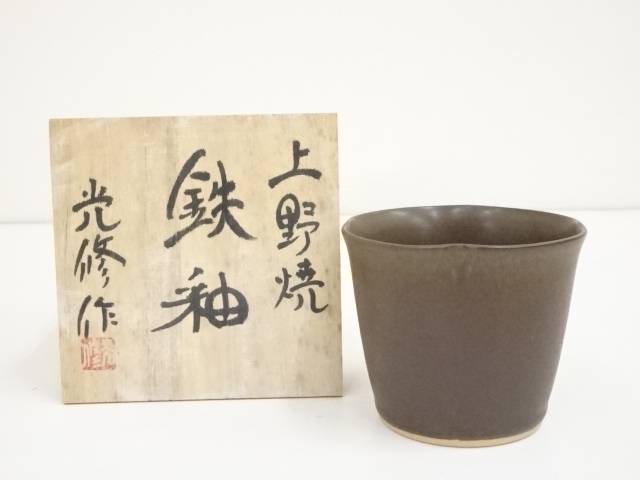 上野焼
鉄釉
光修作